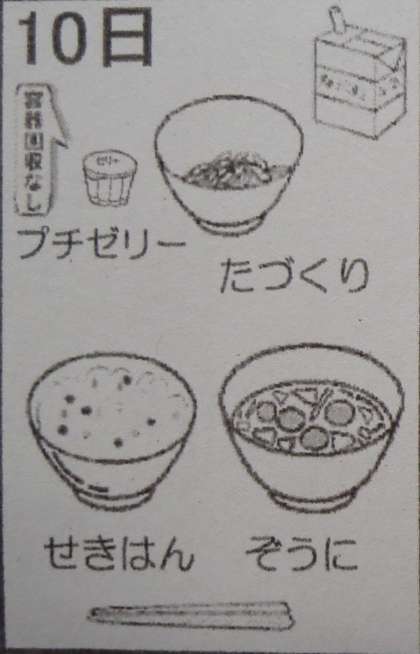 10日
容器回収なし
ゼリー
プチゼリー
たづくり
せきはん
ぞうに